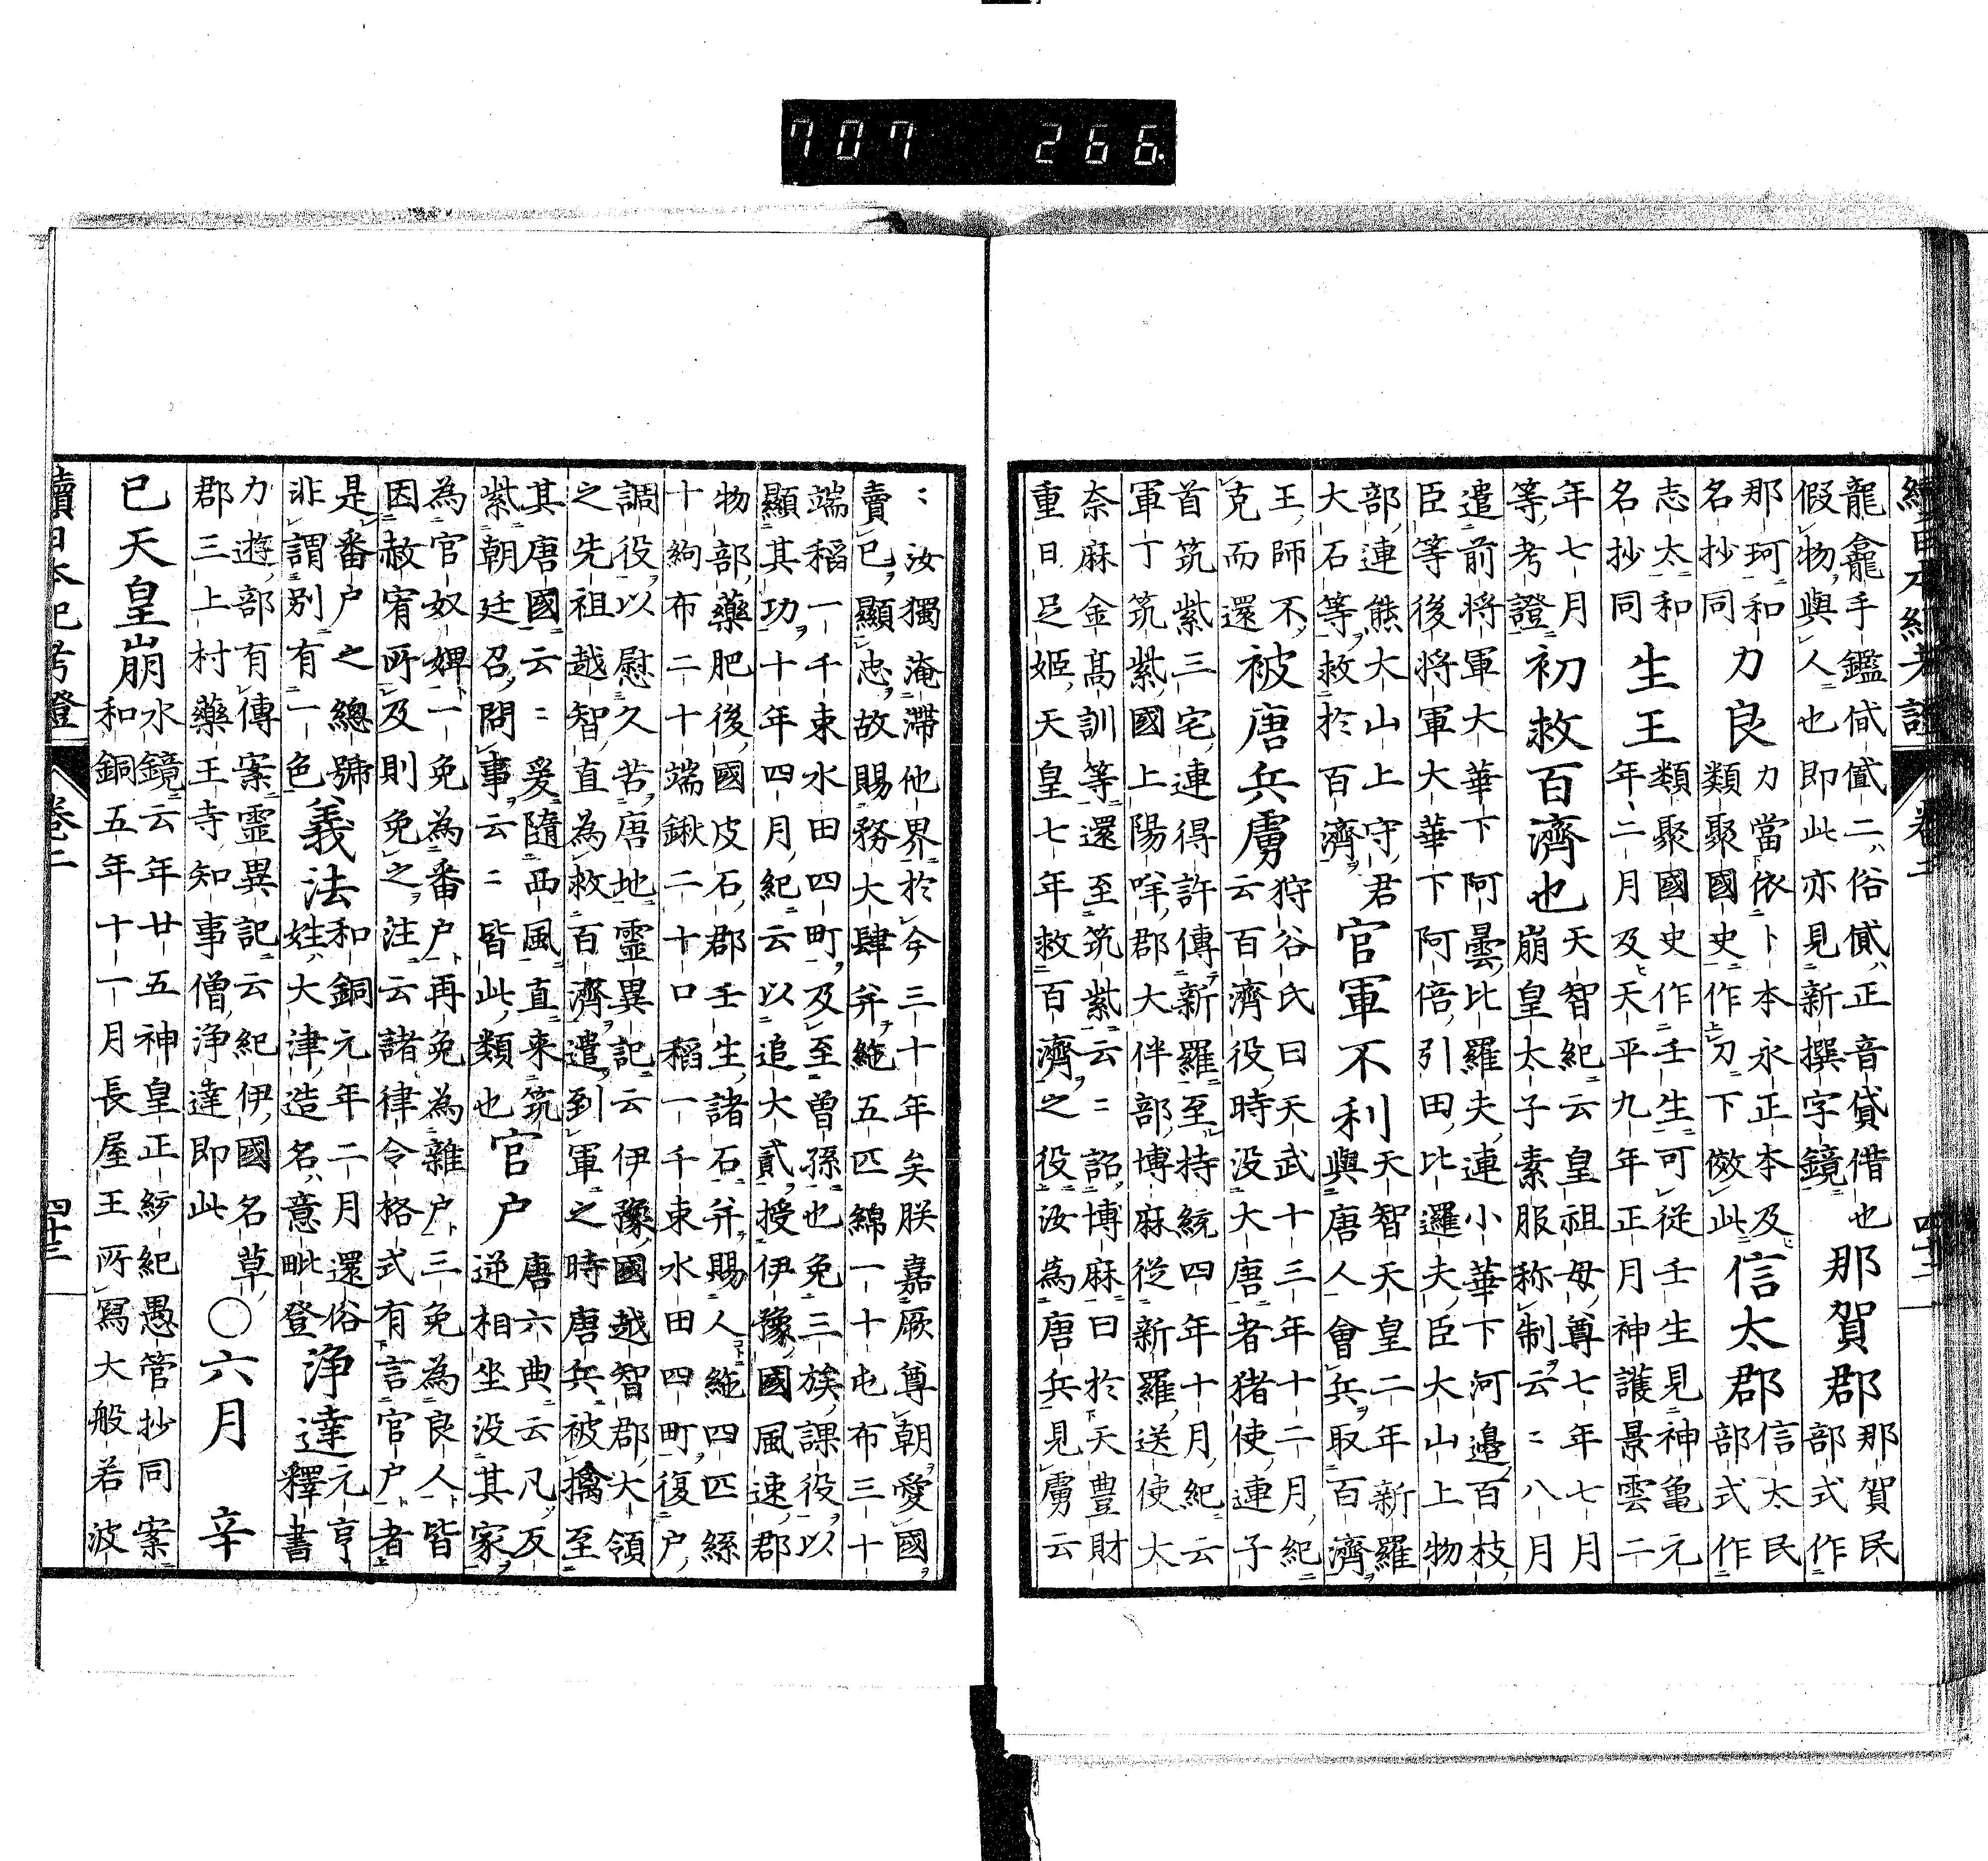 707 266.
續日本紀考證 卷二 四十二
龍龕手鑑㑀㒃二俗貸正音貸借也 那賀郡 那賀民
假物與人也即此亦見新撰字鏡 部式作
那珂和 力良 力當依卜本永正本及 信太郡 信太民
名抄同 類聚國史作刀下倣此 部式作
志太和 生王 類聚國史作壬生可從壬生見神龜元
名抄同 年二月及天平九年正月神護景雲二
年七月 初救百濟也 天智紀云皇祖母尊七年七月
等考證 崩皇太子素服称制云〻八月
遣前將軍大華下阿曇比羅夫連小華下河邊百枝
臣等後將軍大華下阿倍引田比邏夫臣大山上物
部連熊大山上守君 官軍不利 天智天皇二年新羅
大石等救於百濟 與唐人會兵取百濟
王師不 被唐兵虜 狩谷氏曰天武十三年十二月紀
克而還 云百濟役時没大唐者猪使連子
首筑紫三宅連得許傳新羅至持統四年十月紀云
軍丁筑紫國上陽咩郡大伴部博麻從新羅送使大
奈麻金高訓等還至筑紫云〻詔博麻曰於天豊財
重日足姬天皇七年救百濟之役汝為唐兵見虜云
〻汝獨淹滯他界於今三十年矣朕嘉厥尊朝愛國
賣已顯忠故賜務大肆并絁五匹綿一十屯布三十
端稻一千束水田四町及至曾孫也免三族課役以
顯其功十年四月紀云以追大貳授伊豫國風速郡
物部藥肥後國皮石郡壬生諸石并賜人絁四匹絲
十絇布二十端鍬二十口稻一千束水田四町復户
調役以慰久苦唐地靈異記云伊豫國越智郡大領
之先祖越智直為救百濟遣到軍之時唐兵被擒至
其唐國云〻爰隨西風直来筑 官户 唐六典云凡反
紫朝廷召問事云〻皆此類也 逆相坐没其家
為官奴婢一免為番户再免為雜户三免為良人皆
因赦宥所及則免之注云諸律令格式有言官户者
是番户之總號 義法 和銅元年二月還俗 浄達 元亨
非謂別有一色 姓大津造名意毗登 釋書
力遊部有傳案靈異記云紀伊國名草 ○六月 辛
郡三上村藥王寺知事僧浄達即此
已天皇崩 水鏡云年廿五神皇正統紀愚管抄同案
和銅五年十一月長屋王所寫大般若波
續日本紀考證 卷二 四十三